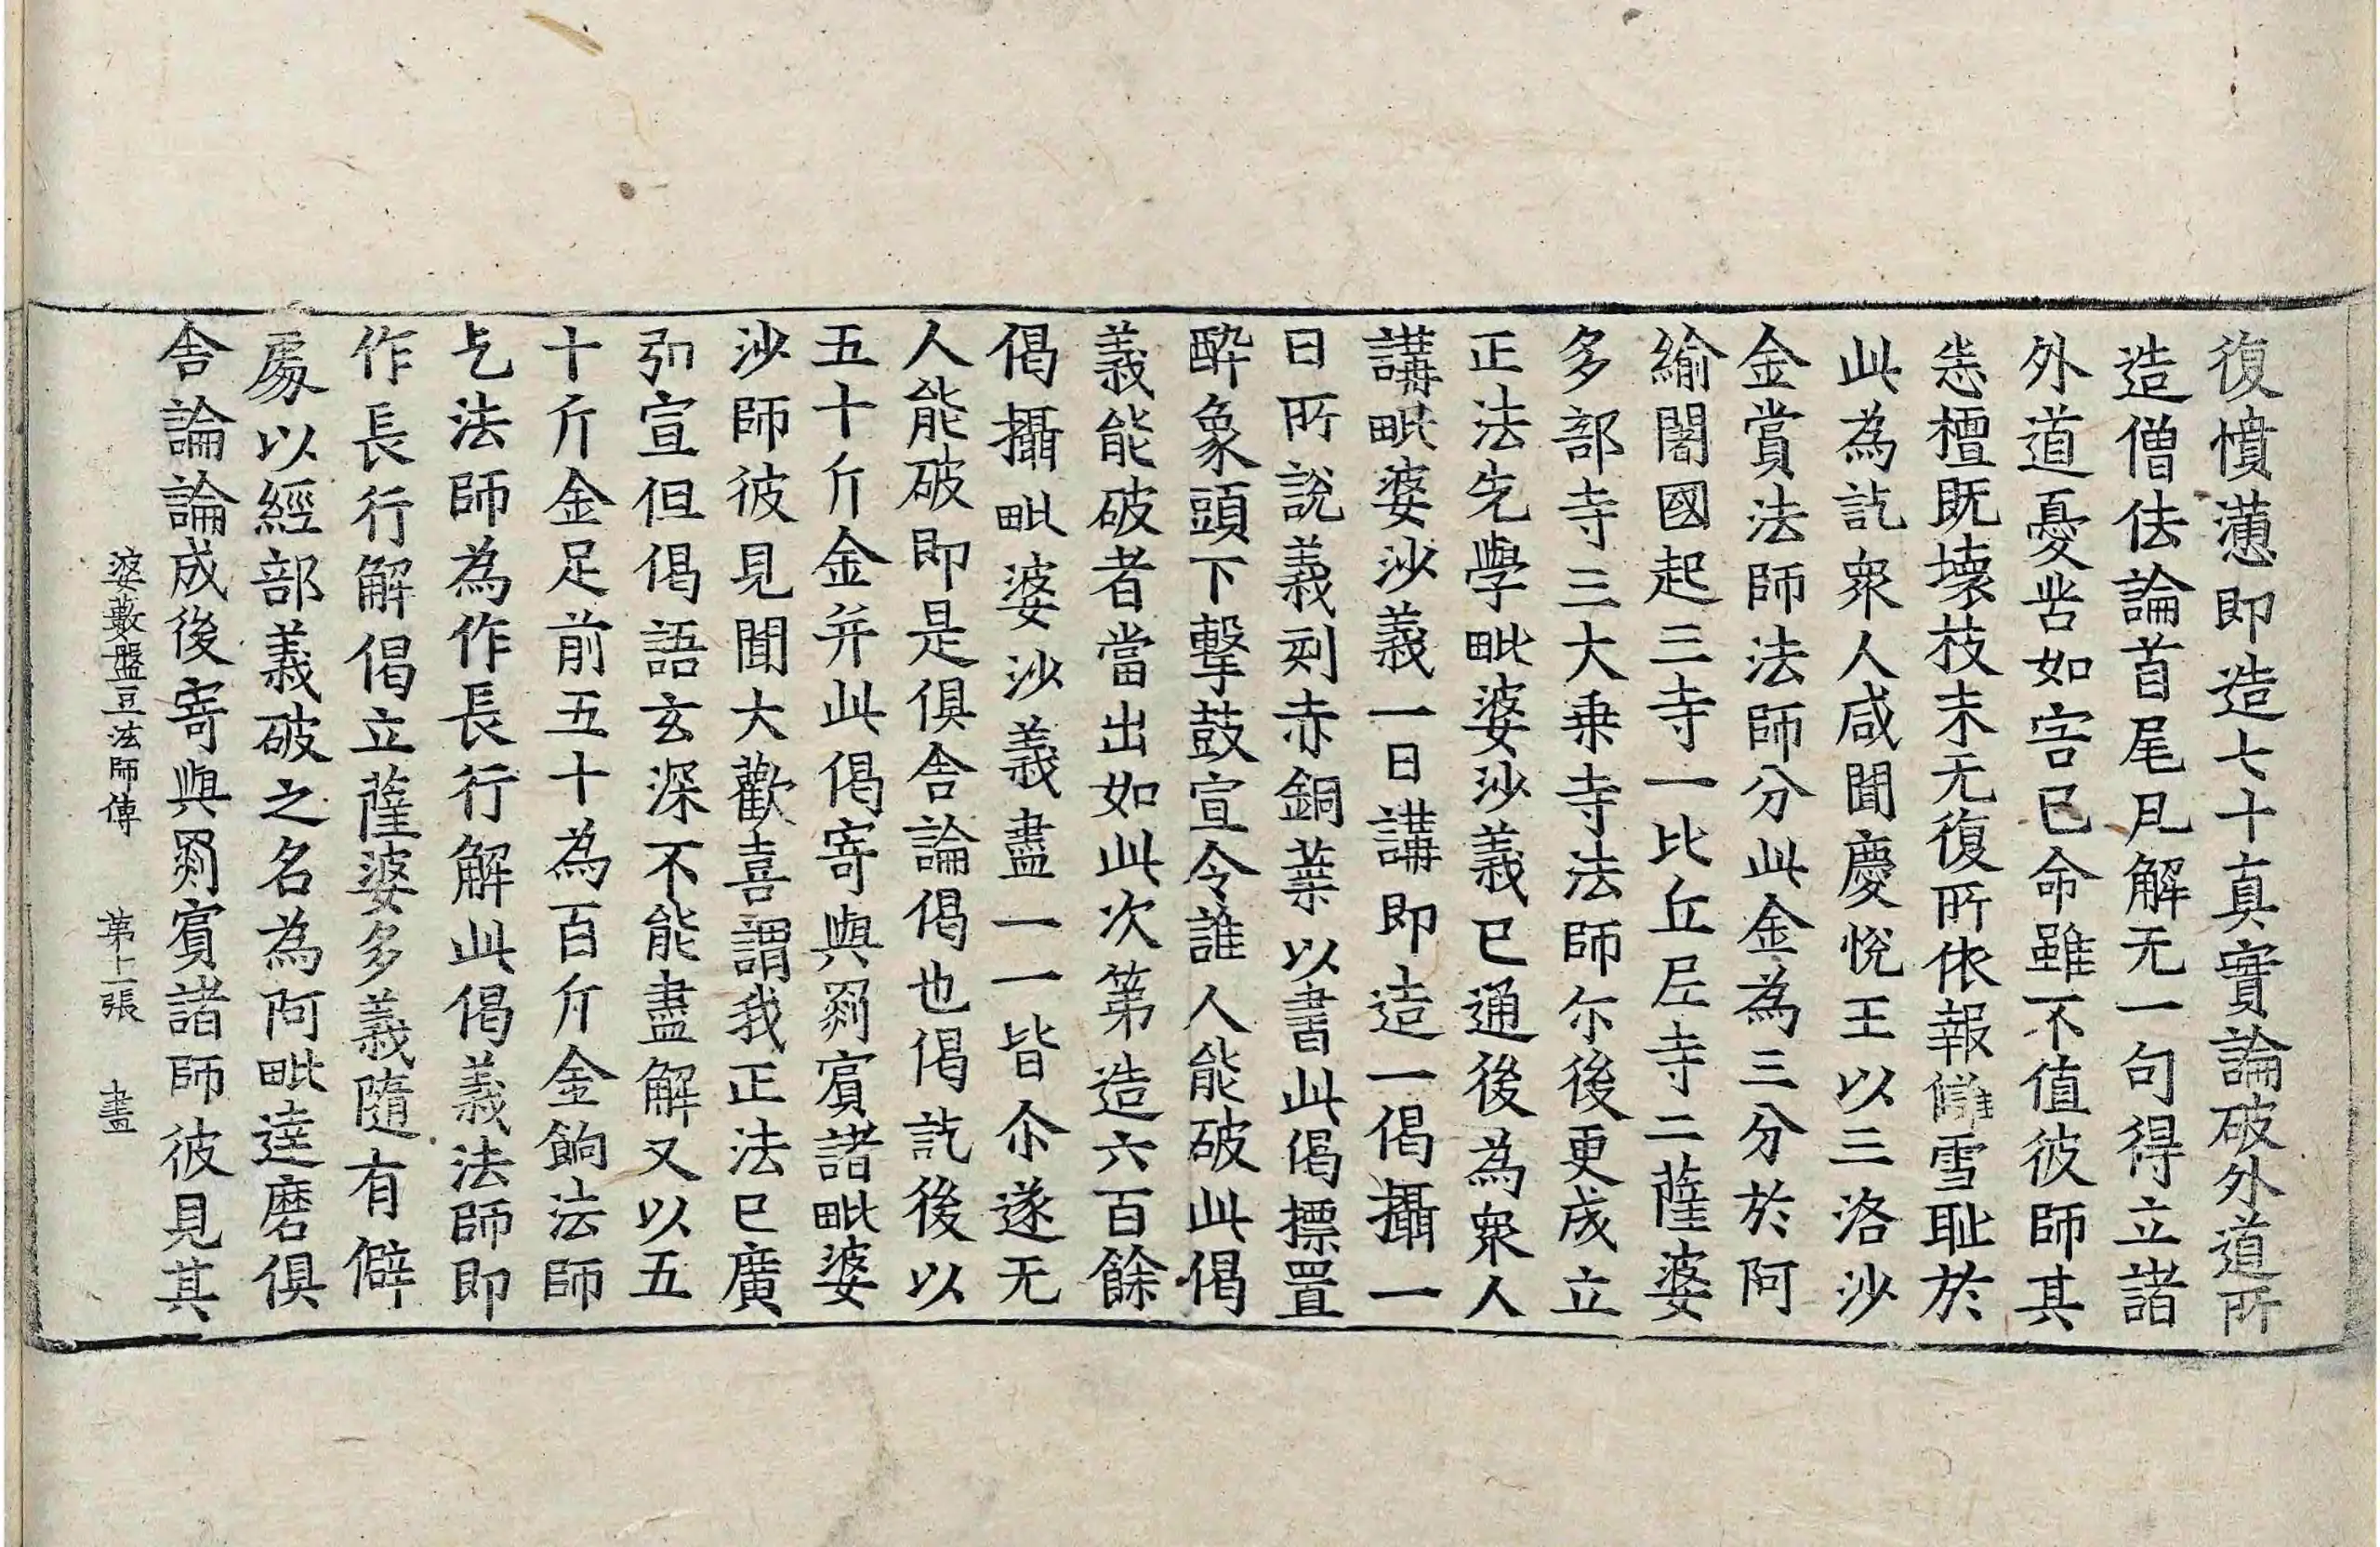 復憤懣即造七十真實論破外道所
造僧佉論首尾凡解无一句得立諸
外道憂苦如害已命雖不值彼師其
恙檀既壊枝末无復所依報讎雪耻於
此為訖衆人咸聞慶悅王以三洛沙
金賞法師法師分此金為三分於阿
緰闍國起三寺一比丘尼寺二薩婆
多部寺三大乗寺法師尒後更成立
正法先學毗婆沙義已通後為衆人
講毗婆沙義一日講即造一偈攝一
日所說義刻赤銅葉以書此偈摽置
醉象頭下擊鼓宣令誰人能破此偈
義能破者當出如此次第造六百餘
偈攝毗婆沙義盡一一皆尒遂无
人能破即是俱舎論偈也偈訖後以
五十斤金并此偈寄與罽賓諸毗婆
沙師彼見聞大歡喜謂我正法已廣
弘宣但偈語玄深不能盡解又以五
十斤金足前五十為百斤金餉法師
乞法師為作長行解此偈義法師即
作長行解偈立薩婆多義隨有僻
處以經部義破之名為阿毗達磨俱
舎論論成後寄與罽賓諸師彼見其
婆藪盤豆法師傳 第十張 畫